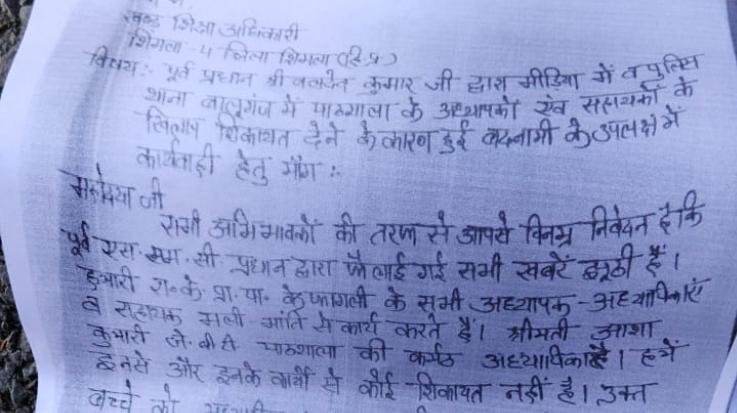 खण्ड शिक्षा अधिकारी
शिमला - 4 जिला शिमला (हि.प्र.)
विषय:- पूर्व प्रधान श्री बलदेव कुमार जी द्वारा मीडिया में व पुलिस
थाना बालूगंज में पाठशाला के अध्यापकों एंव सहायकों के
खिलाप शिकायत देने के कारण हुई बदनामी के उपलक्ष में
कार्यवाही हेतु माँग :-
महोदया जी
सभी अभिभावकों की तरफ से आपसे विनम्र निवेदन है कि
पूर्व एस. एम. सी. प्रधान द्वारा फैलाई गई सभी खबरें झूठी हैं।
हमारी रा॰के॰प्रा.पा॰ के फागली के सभी अध्यापक-अध्यापिकाएं
व सहायक भली भांति से कार्य करते हैं। श्रीमती आशा
कुमारी जे.बी.टी पाठशाला की कर्मठ अध्यापिका है। हमें
इनसे और इनके कार्यों से कोई शिकायत नहीं है। उक्त
बच्चे को